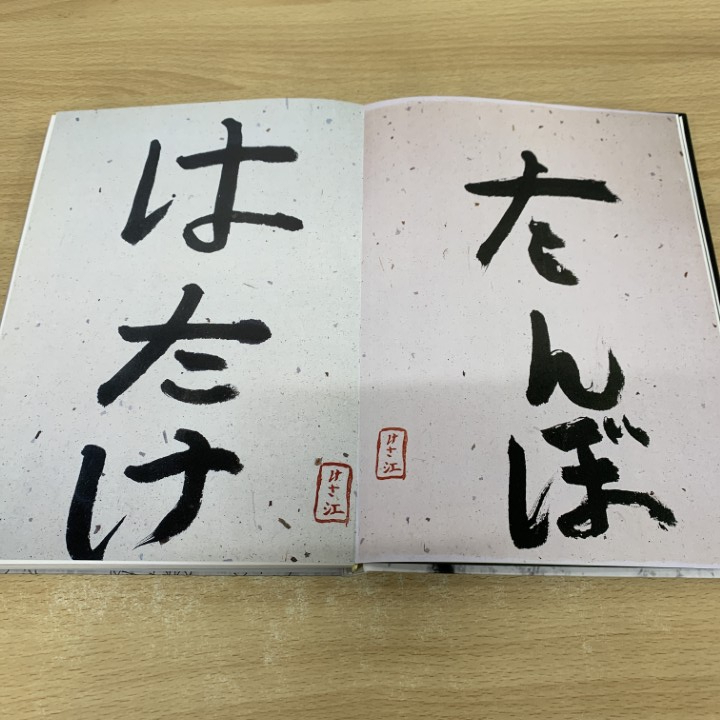 たんぼ
けさ江
はたけ
けさ江